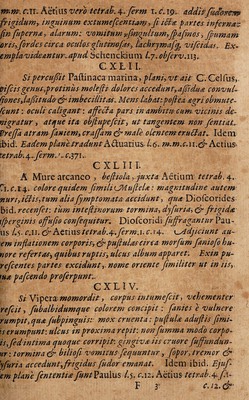 m.m.c.11. Aëtius verò tetrab. 4. serm 1.c.19. addit sudorem
frigidum, inguinum extumescentiam, si icta partes inferna:
sin superna, alarum: vomitum, singultum, spasmos, spumam
oris, sordes circa oculos glutinosas, lachrymasq́, viscidas. Ex-
empla videantur. apud Schenckium L7. observ.113.
CXLII.
Si percussit Pastinaca marina, plani, vt ait C. Celsus,
piscis genus, protinus molestè dolores accedunt, assiduæ convul-
siones, lassitudo & imbecillitas. Mens labat: postea agri obmute-
scunt: oculi caligant: affecta pars in ambitu cum vicinis de-
nigratur, atque ita obstupescit, ut tangentem non sentiat.
Pressa atram saniem, crassam & male olentem eructat. Idem
ibid. Eadem planè tradunt Actuarius l.6. m.m.c.11. & Aetius
tetrab. 4. serm. 1. c.371.
CXLIII.
A Mure arcaneo, bestiola, juxta Aëtium tetrab. 4.
s.1.c.14. colore quidem simili Mustelæ: magnitudine autem
muri, ictis, tum alia symptomata accidunt, quæ Dioscorides
ibid. recenset: tum intestinorum tormina, dysuria, & frigida
suspergins effusio consequitur. Dioscoridi suffragantur Pau-
lus l.5.c.11. & Aetius tetrab. 4. serm. 1. c.14. Adjiciunt au-
tem inflationem corporis, & pustulas circa morsum sanioso hu-
more refertas, quibus ruptis, ulcus album apparet. Exin pu-
trescentes partes excidunt, nome oriente similiter ut in iis,
quæ pascendo proserpunt.
CXLIV.
Si Vipera momordit, corpus intumescit, vehementer
arescit, subalbidumque colorem concipit: sanies è vulnere
erumpit, quæ subpinguis: mox cruenta: pustulæ adustis simi-
les erumpunt: ulcus in proxima repit: non summa modo corpo-
ris, sed intima quoque corripit: gingivæ iis cruore suffundun-
tur: tormina & biliosi vomitus sequuntur, sopor, tremor &
dysuria accedunt, frigidus sudor emanat. Idem ibid. Ejus-
dem planè sententiæ sunt Paulus l.5. c.12. Aëtius tetrab. 4. s.1.
F 3 c.12. &